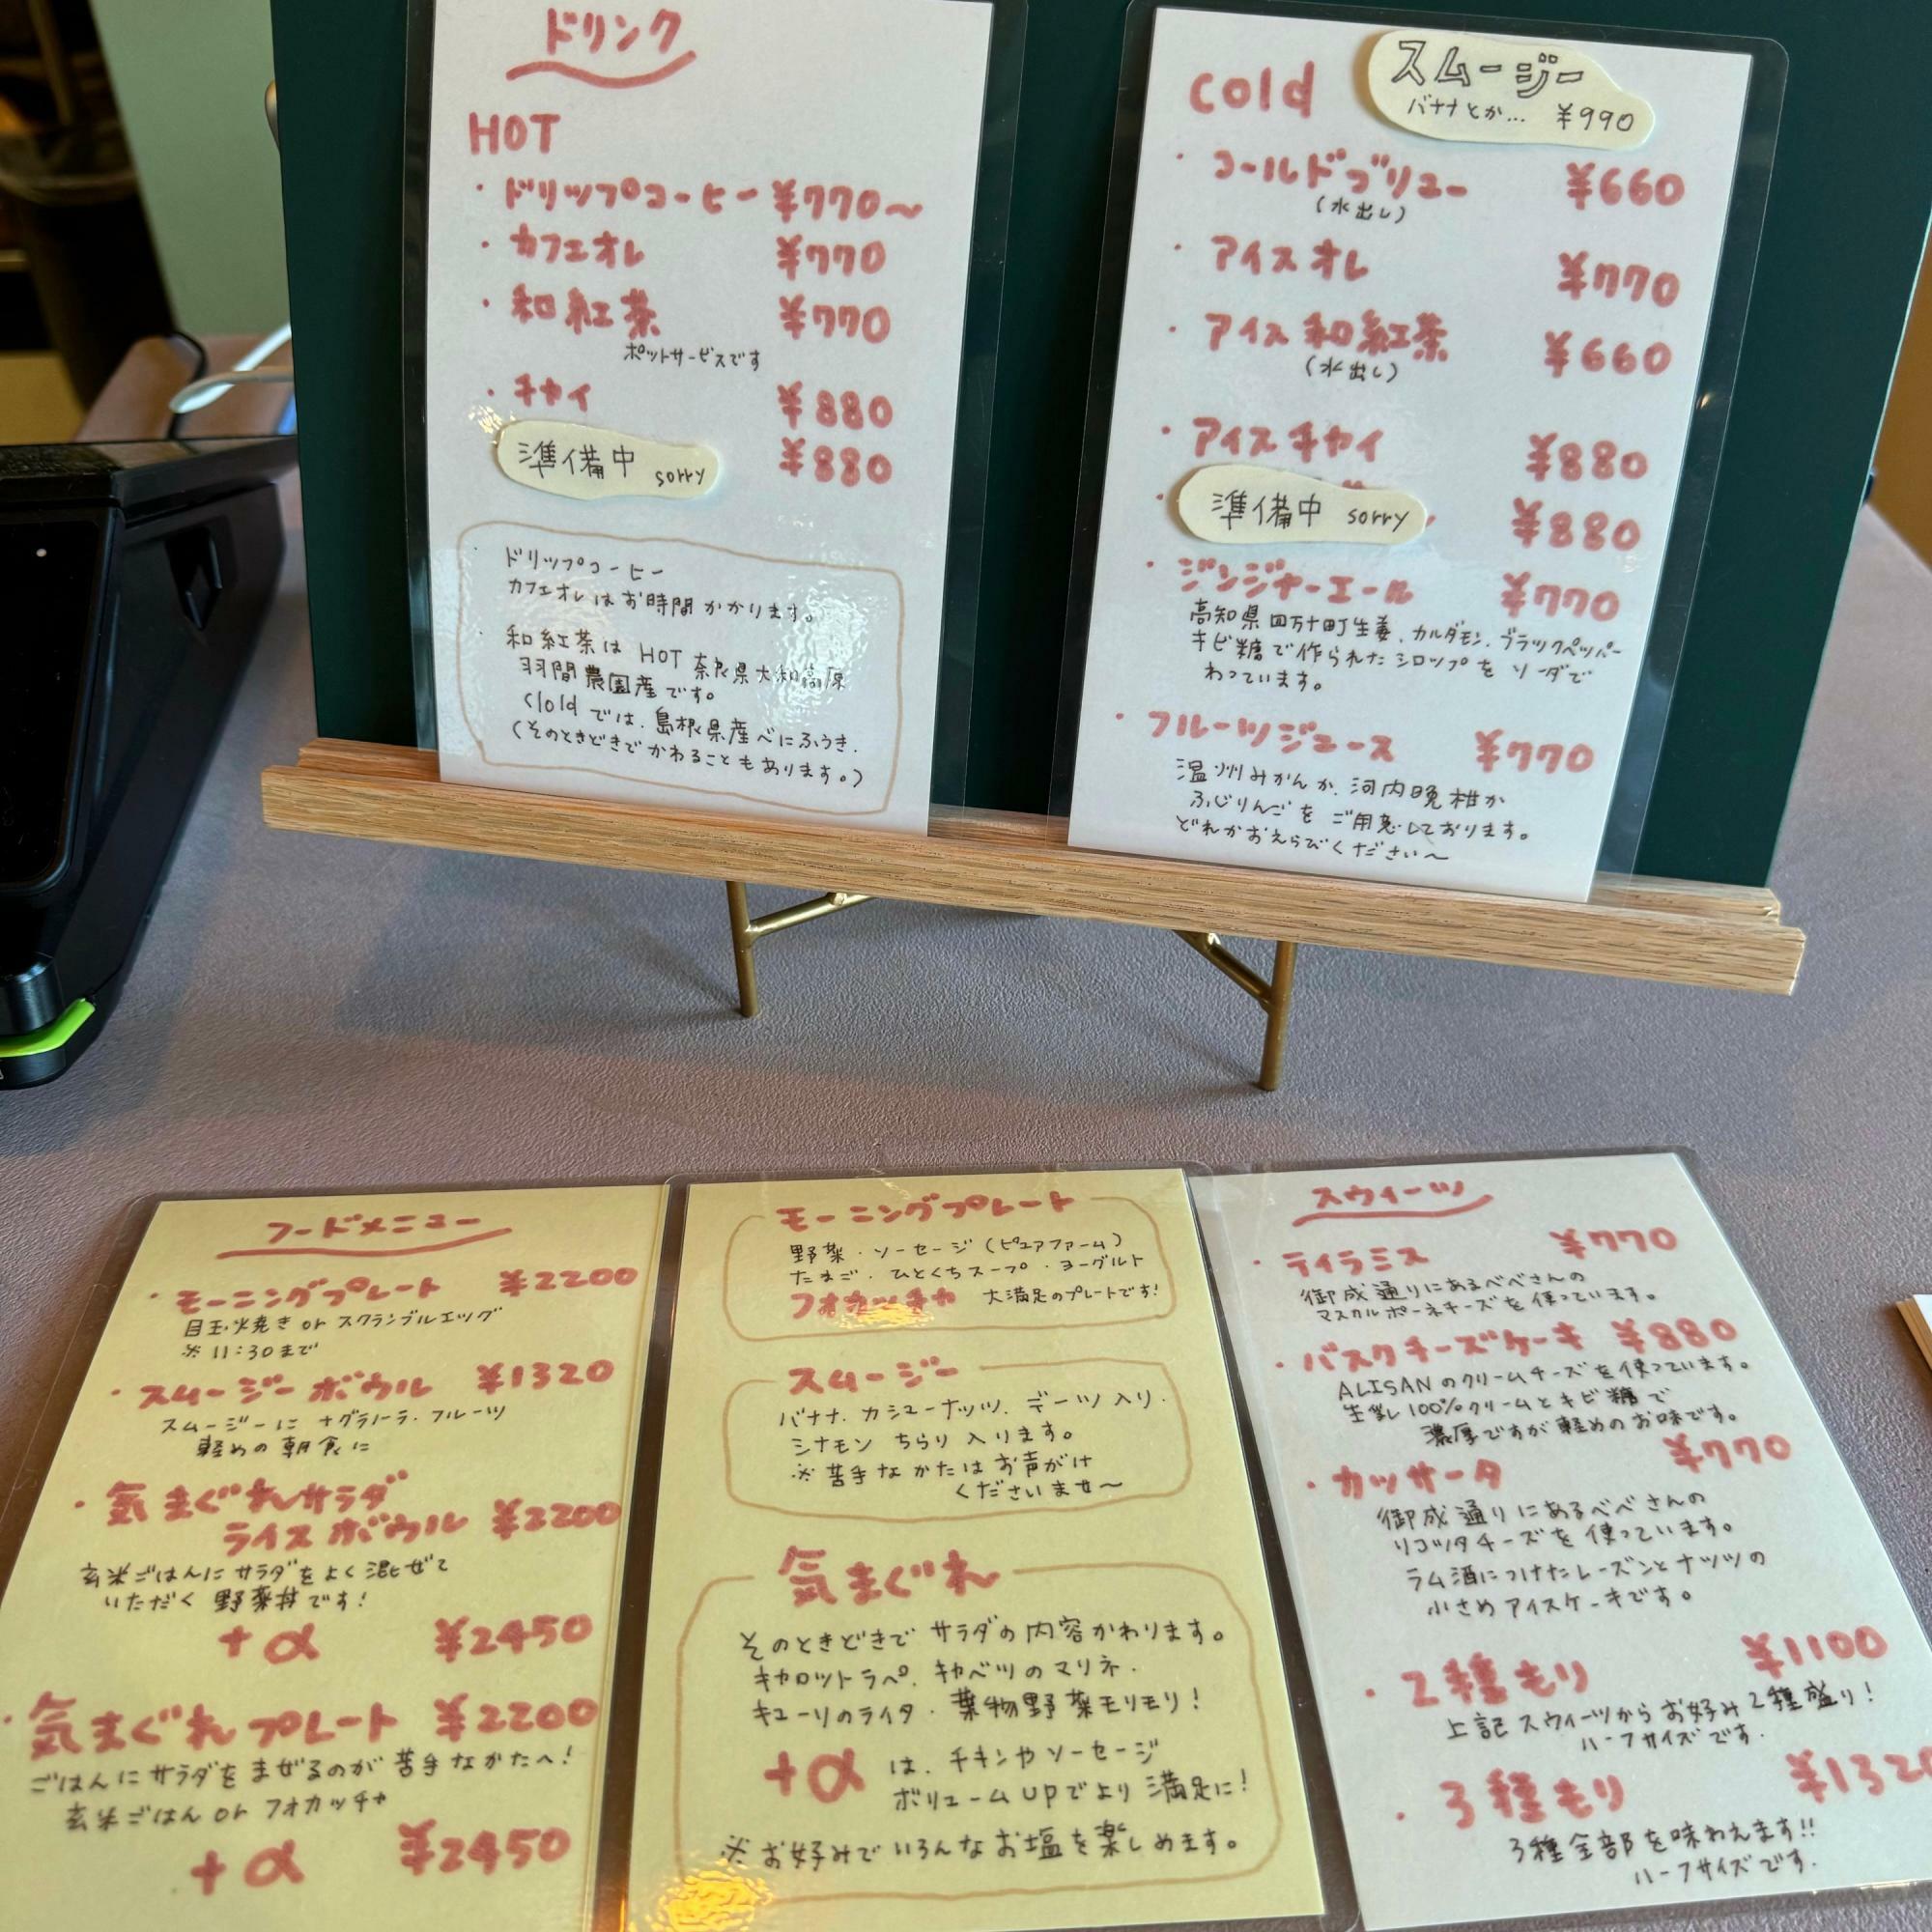 ドリンク
HOT
・ドリップコーヒー ¥770〜
・カフェオレ ¥770
・和紅茶 ¥770
ポットサービスです
・チャイ ¥880
準備中 sorry ¥880
ドリップコーヒー
カフェオレはお時間かかります。
和紅茶は HOT 奈良県大和高原
羽間農園産です。
Cold では、島根県産べにふうき.
(そのときどきでかわることもあります。)
Cold
スムージー
バナナとか… ¥990
・コールドブリュー ¥660
(水出し)
・アイスオレ ¥770
・アイス和紅茶 ¥660
(水出し)
・アイスチャイ ¥880
準備中 sorry ¥880
・ジンジャーエール ¥770
高知県四万十町生姜、カルダモン、ブラックペッパー
キビ糖で作られたシロップをソーダで
わっています。
・フルーツジュース ¥770
温州みかんか、河内晩柑か
ふじりんごをご用意しております。
どれかおえらびください〜
フードメニュー
・モーニングプレート ¥2200
目玉焼き or スクランブルエッグ
※11:30まで
・スムージーボウル ¥1320
スムージーに +グラノーラ・フルーツ
軽めの朝食に
・気まぐれサラダ
ライスボウル ¥2200
玄米ごはんにサラダをよく混ぜて
いただく野菜丼です!
+α ¥2450
・気まぐれプレート ¥2200
ごはんにサラダをまぜるのが苦手なかたへ!
玄米ごはん or フォカッチャ
+α ¥2450
モーニングプレート
野菜・ソーセージ(ピュアファーム)
たまご・ひとくちスープ・ヨーグルト
フォカッチャ 大満足のプレートです!
スムージー
バナナ、カシューナッツ、デーツ入り.
シナモンちらり入ります。
※苦手なかたはお声がけ
くださいませ〜
気まぐれ
そのときどきでサラダの内容かわります。
キャロットラペ、キャベツのマリネ.
キューリのライタ・葉物野菜モリモリ!
+α は、チキンやソーセージ
ボリュームUPでより満足に!
※お好みでいろんなお塩を楽しめます。
スウィーツ
・ティラミス ¥770
御成通りにあるべべさんの
マスカルポーネチーズを使っています。
・バスクチーズケーキ ¥880
ALISANのクリームチーズを使っています。
生乳100%クリームとキビ糖で
濃厚ですが軽めのお味です。
・カッサータ ¥770
御成通りにあるべべさんの
リコッタチーズを使っています。
ラム酒につけたレーズンとナッツの
小さめアイスケーキです。
・2種もり ¥1100
上記スウィーツからお好み2種盛り!
ハーフサイズです.
・3種もり ¥1320
3種全部を味わえます!!
ハーフサイズです.